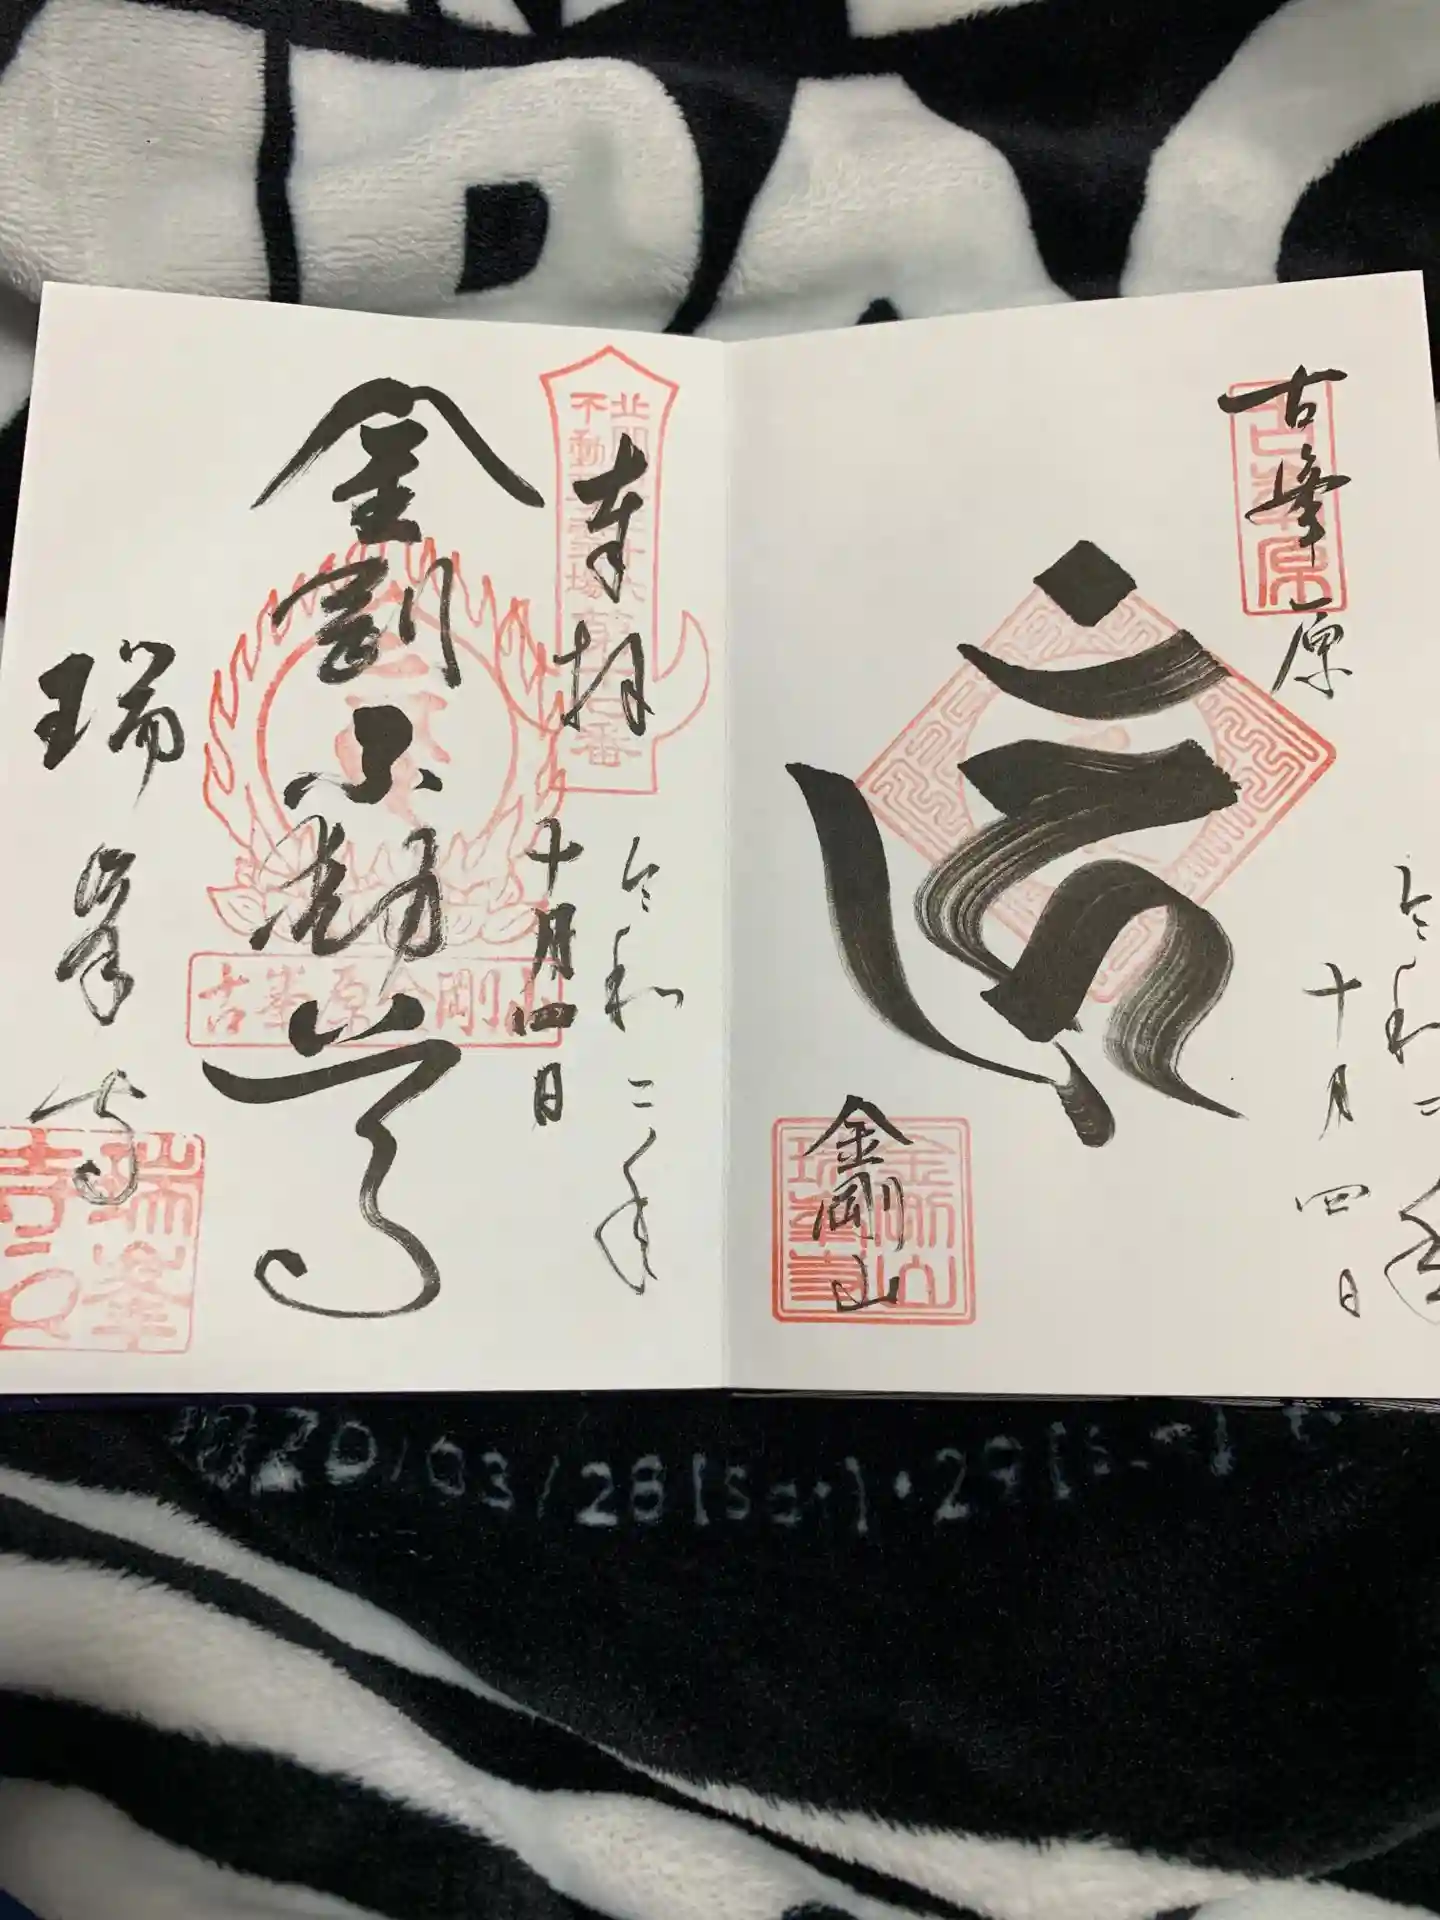 古峯原
古峯原
令和二年
十月四日
金剛山
金剛山
瑞峯寺
奉拝
北関東三十六
不動尊霊場第二番
令和二年
十月四日
金剛不動尊
古峯原金剛山
瑞峯寺
瑞峯
2020/03/28[Sat]・29[S